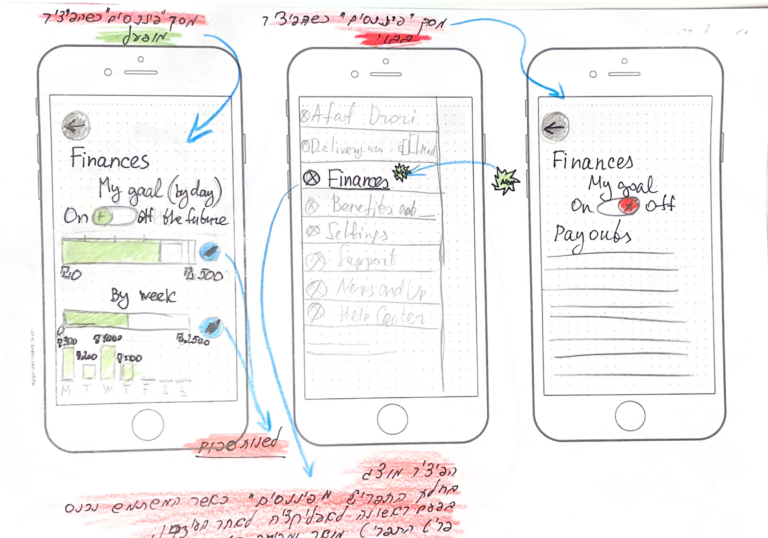 מסך "פיננסים" כשהפיצ'ר
מופעל
מסך "פיננסים" כשהפיצ'ר
כבוי
Finances
My goal (by day)
On Off the future
₪0 ₪500
By week
0 ₪2500
₪300 ₪200 ₪500
M T W T F S S
לשנות סכום
Delivery
Finances
Benefits and
Settings
Support
News and Up
Help Center
New
Finances
My goal
On Off
Payouts
הפיצ'ר מוצג
בחלק התפריט "פיננסים" כאשר המשתמש נכנס
בפעם ראשונה לאפליקציה לאחר העידכון